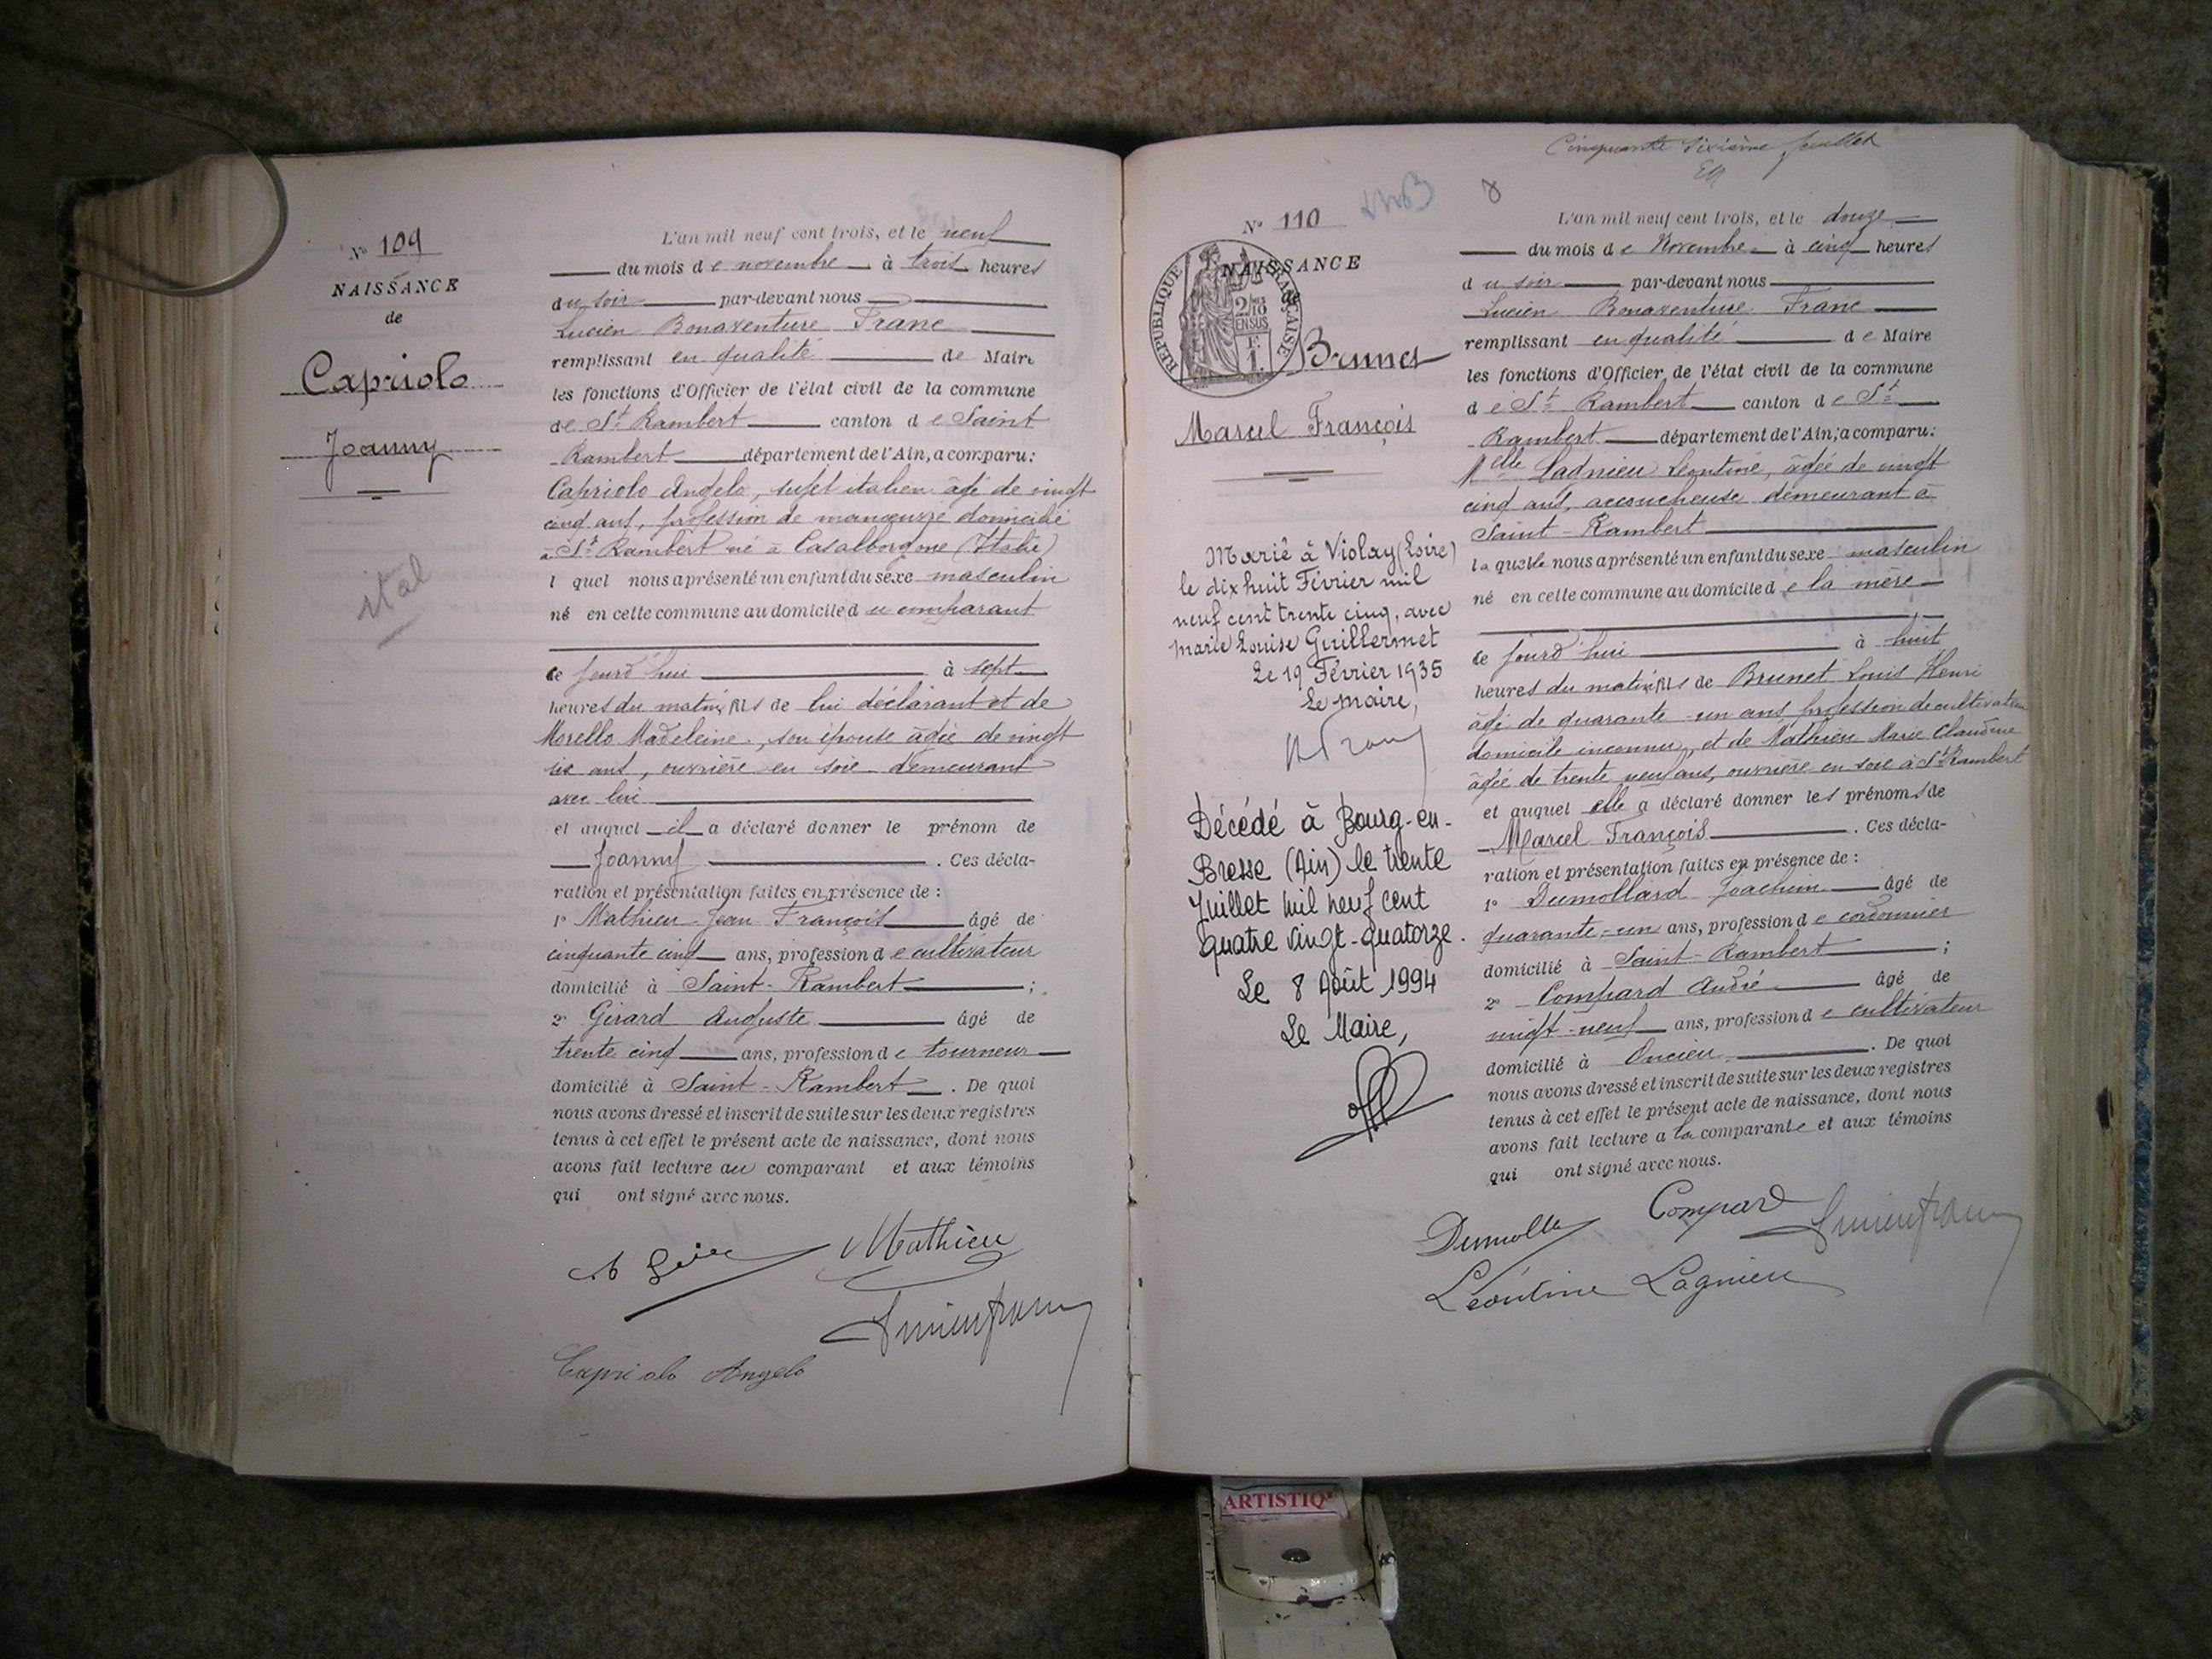 N° 109
NAISSANCE
de
Capriolo
Joanny
ital
L'an mil neuf cent trois, et le neuf
du mois de novembre à trois heures
du soir par-devant nous
Lucien Bonaventure Franc
remplissant en qualité de Maire
les fonctions d'Officier de l'état civil de la commune
de St Rambert canton de Saint
Rambert département de l'Ain, a comparu:
Capriolo Angelo, sujet italien âgé de vingt
cinq ans, profession de manœuvre domicilié
à St Rambert né à Casalborgone (Italie)
l quel nous a présenté un enfant du sexe masculin
né en cette commune au domicile du comparant
ce jourd'hui à sept
heures du matin, fils de lui déclarant et de
Morello Madeleine, son épouse âgée de vingt
six ans, ouvrière en soie demeurant
avec lui
et auquel il a déclaré donner le prénom de
Joanny. Ces décla-
ration et présentation faites en présence de :
1° Mathieu Jean François âgé de
cinquante cinq ans, profession de cultivateur
domicilié à Saint-Rambert ;
2° Girard Auguste âgé de
trente cinq ans, profession de tourneur
domicilié à Saint-Rambert. De quoi
nous avons dressé et inscrit de suite sur les deux registres
tenus à cet effet le présent acte de naissance, dont nous
avons fait lecture au comparant et aux témoins
qui ont signé avec nous.
Mathieu
Capriolo Angelo
Cinquante sixième feuillet
N° 110
8
NAISSANCE
de
RÉPUBLIQUE FRANÇAISE
2/10 EN SUS
F. 1.
Brunet
Marcel François
Marié à Violay (Loire)
le dix huit Février mil
neuf cent trente cinq, avec
marie Louise Guillermet
Le 19 Février 1935
Le maire,
Décédé à Bourg-en-
Bresse (Ain) le trente
Juillet mil neuf cent
quatre vingt-quatorze.
Le 8 Août 1994
Le Maire,
L'an mil neuf cent trois, et le douze
du mois de Novembre à cinq heures
du soir par-devant nous
Lucien Bonaventure Franc
remplissant en qualité de Maire
les fonctions d'Officier de l'état civil de la commune
de St Rambert canton de St
Rambert département de l'Ain, a comparu:
Melle Lagnieu Léontine, âgée de vingt
cinq ans, accoucheuse demeurant à
Saint-Rambert
laquelle nous a présenté un enfant du sexe masculin
né en cette commune au domicile de la mère
ce jourd'hui à huit
heures du matin, fils de Brunet Louis Henri
âgé de quarante un ans profession de cultivateur
domicile inconnu, et de Mathieu Marie Claudine
âgée de trente neuf ans, ouvrière en soie à St Rambert
et auquel elle a déclaré donner les prénoms de
Marcel François. Ces décla-
ration et présentation faites en présence de :
1° Dumollard Joachim âgé de
quarante-un ans, profession de cordonnier
domicilié à Saint-Rambert ;
2° Compard André âgé de
vingt-neuf ans, profession de cultivateur
domicilié à Oncieu. De quoi
nous avons dressé et inscrit de suite sur les deux registres
tenus à cet effet le présent acte de naissance, dont nous
avons fait lecture a la comparante et aux témoins
qui ont signé avec nous.
Compard
Léontine Lagnieu
ARTISTIQ